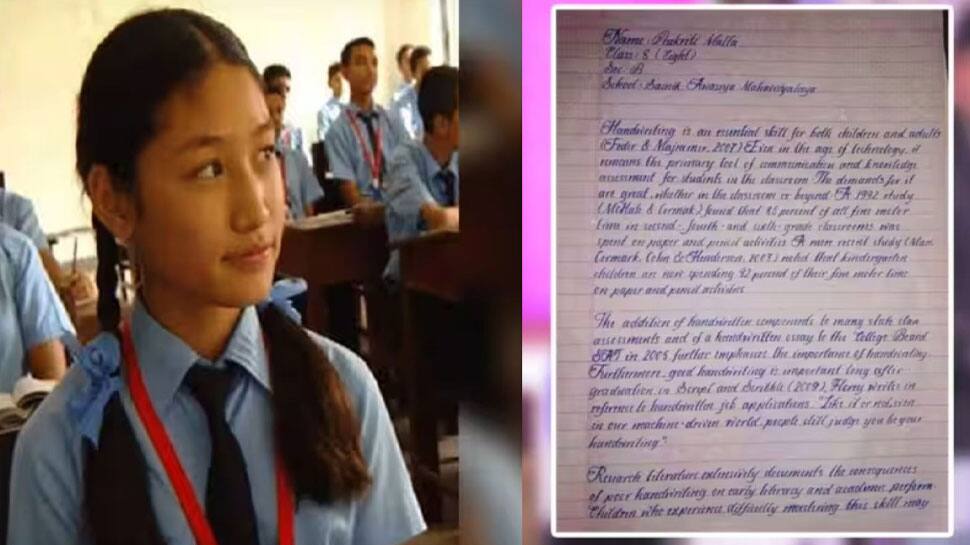 Name: Prakriti Malla
Class: 8 (Eight)
Sec: B
School: Sainik Awasiya Mahavidyalaya
Handwriting is an essential skill for both children and adults
(Feder & Majnemer, 2007) Even in the age of technology, it
remains the primary tool of communication and knowledge
assessment for students in the classroom. The demands for it
are great, whether in the classroom or beyond. A 1992 study
(McHale & Cermak) found that 85 percent of all fine motor
time in second- fourth- and sixth- grade classrooms was
spent on paper and pencil activities. A more recent study (Marr,
Cermark, Cohn & Henderson, 2003) noted that kindergarten
children are now spending 42 percent of their fine motor time
on paper and pencil activities
The addition of handwritten components to many state
assessments and of a handwritten essay to the College Board
SAT in 2005 further emphasis the importance of handwriting.
Furthermore, good handwriting is important long after
graduation, in Script and Scribble (2009), Florey writes in
reference to handwritten job applications. "Like it or not, even
in our machine-driven world, people still judge you by your
handwriting".
Research literature extensively documents the consequences
of poor handwriting on early literacy and academic perform-
Children who experience difficulty mastering this skill may